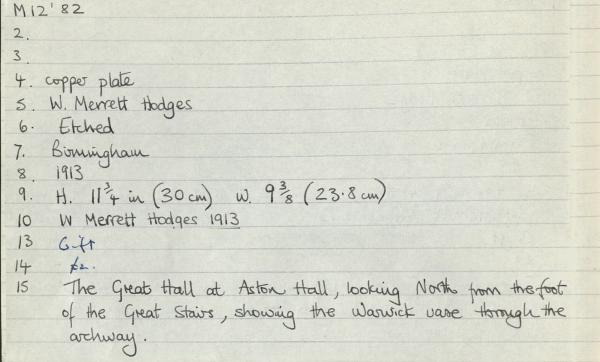 M12'82
2.
3.
4. copper plate
5. W. Merrett Hodges
6. Etched
7. Birmingham
8. 1913
9. H. 11 3/4 in (30 cm) W. 9 3/8 (23.8 cm)
10 W Merrett Hodges 1913
13 Gift
14
15 The Great Hall at Aston Hall, looking North from the foot
of the Great Stairs, showing the Warwick vase through the
archway.